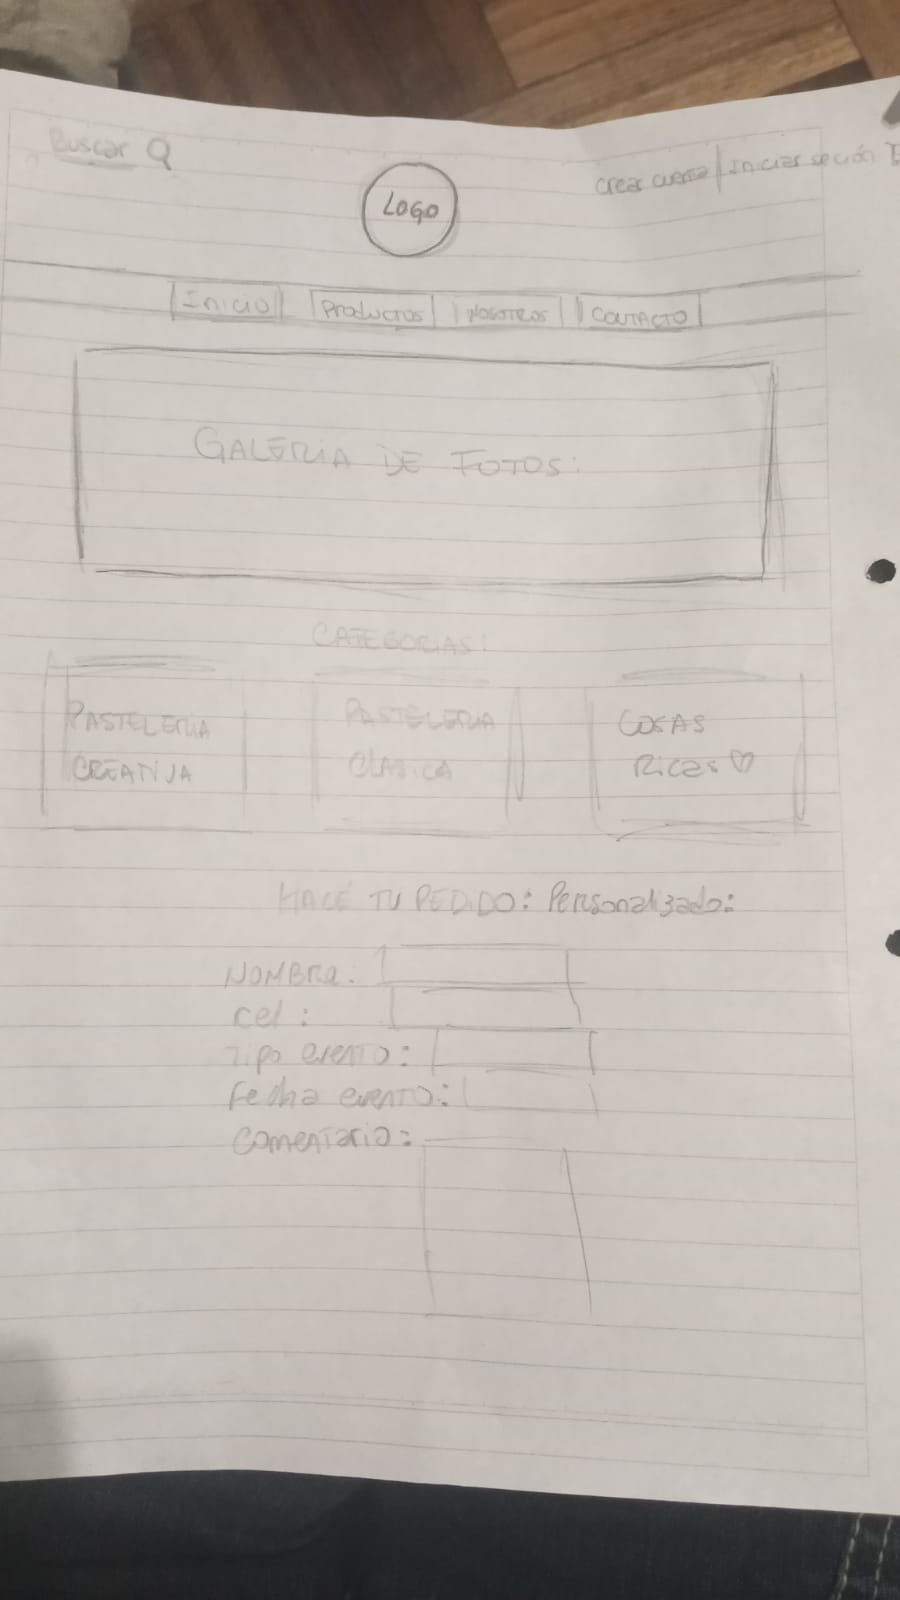 Buscar
crear cuenta / Iniciar seción
LOGO
Inicio Productos NOSOTROS CONTACTO
GALERIA DE FOTOS:
CATEGORIAS:
PASTELERIA CREATIVA
PASTELERIA CLASICA
COSAS Ricas ♡
HACÉ TU PEDIDO: Personalizado:
NOMBRE:
cel:
Tipo evento:
Fecha evento:
Comentario: